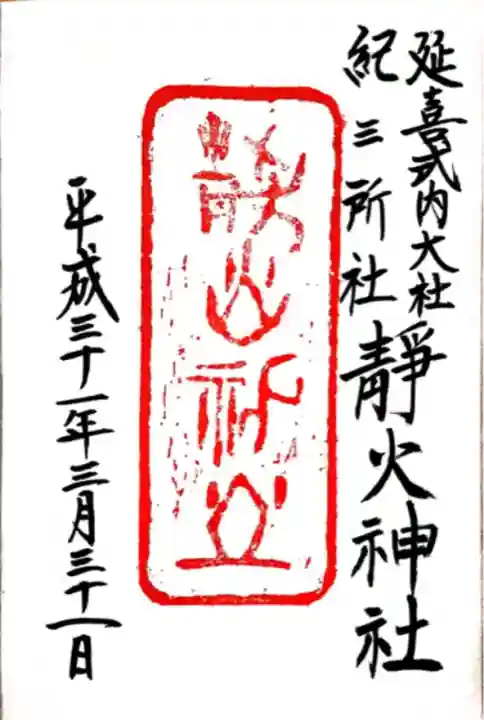 延喜式内大社
紀三所社
靜火神社
静火神社
平成三十一年三月三十一日